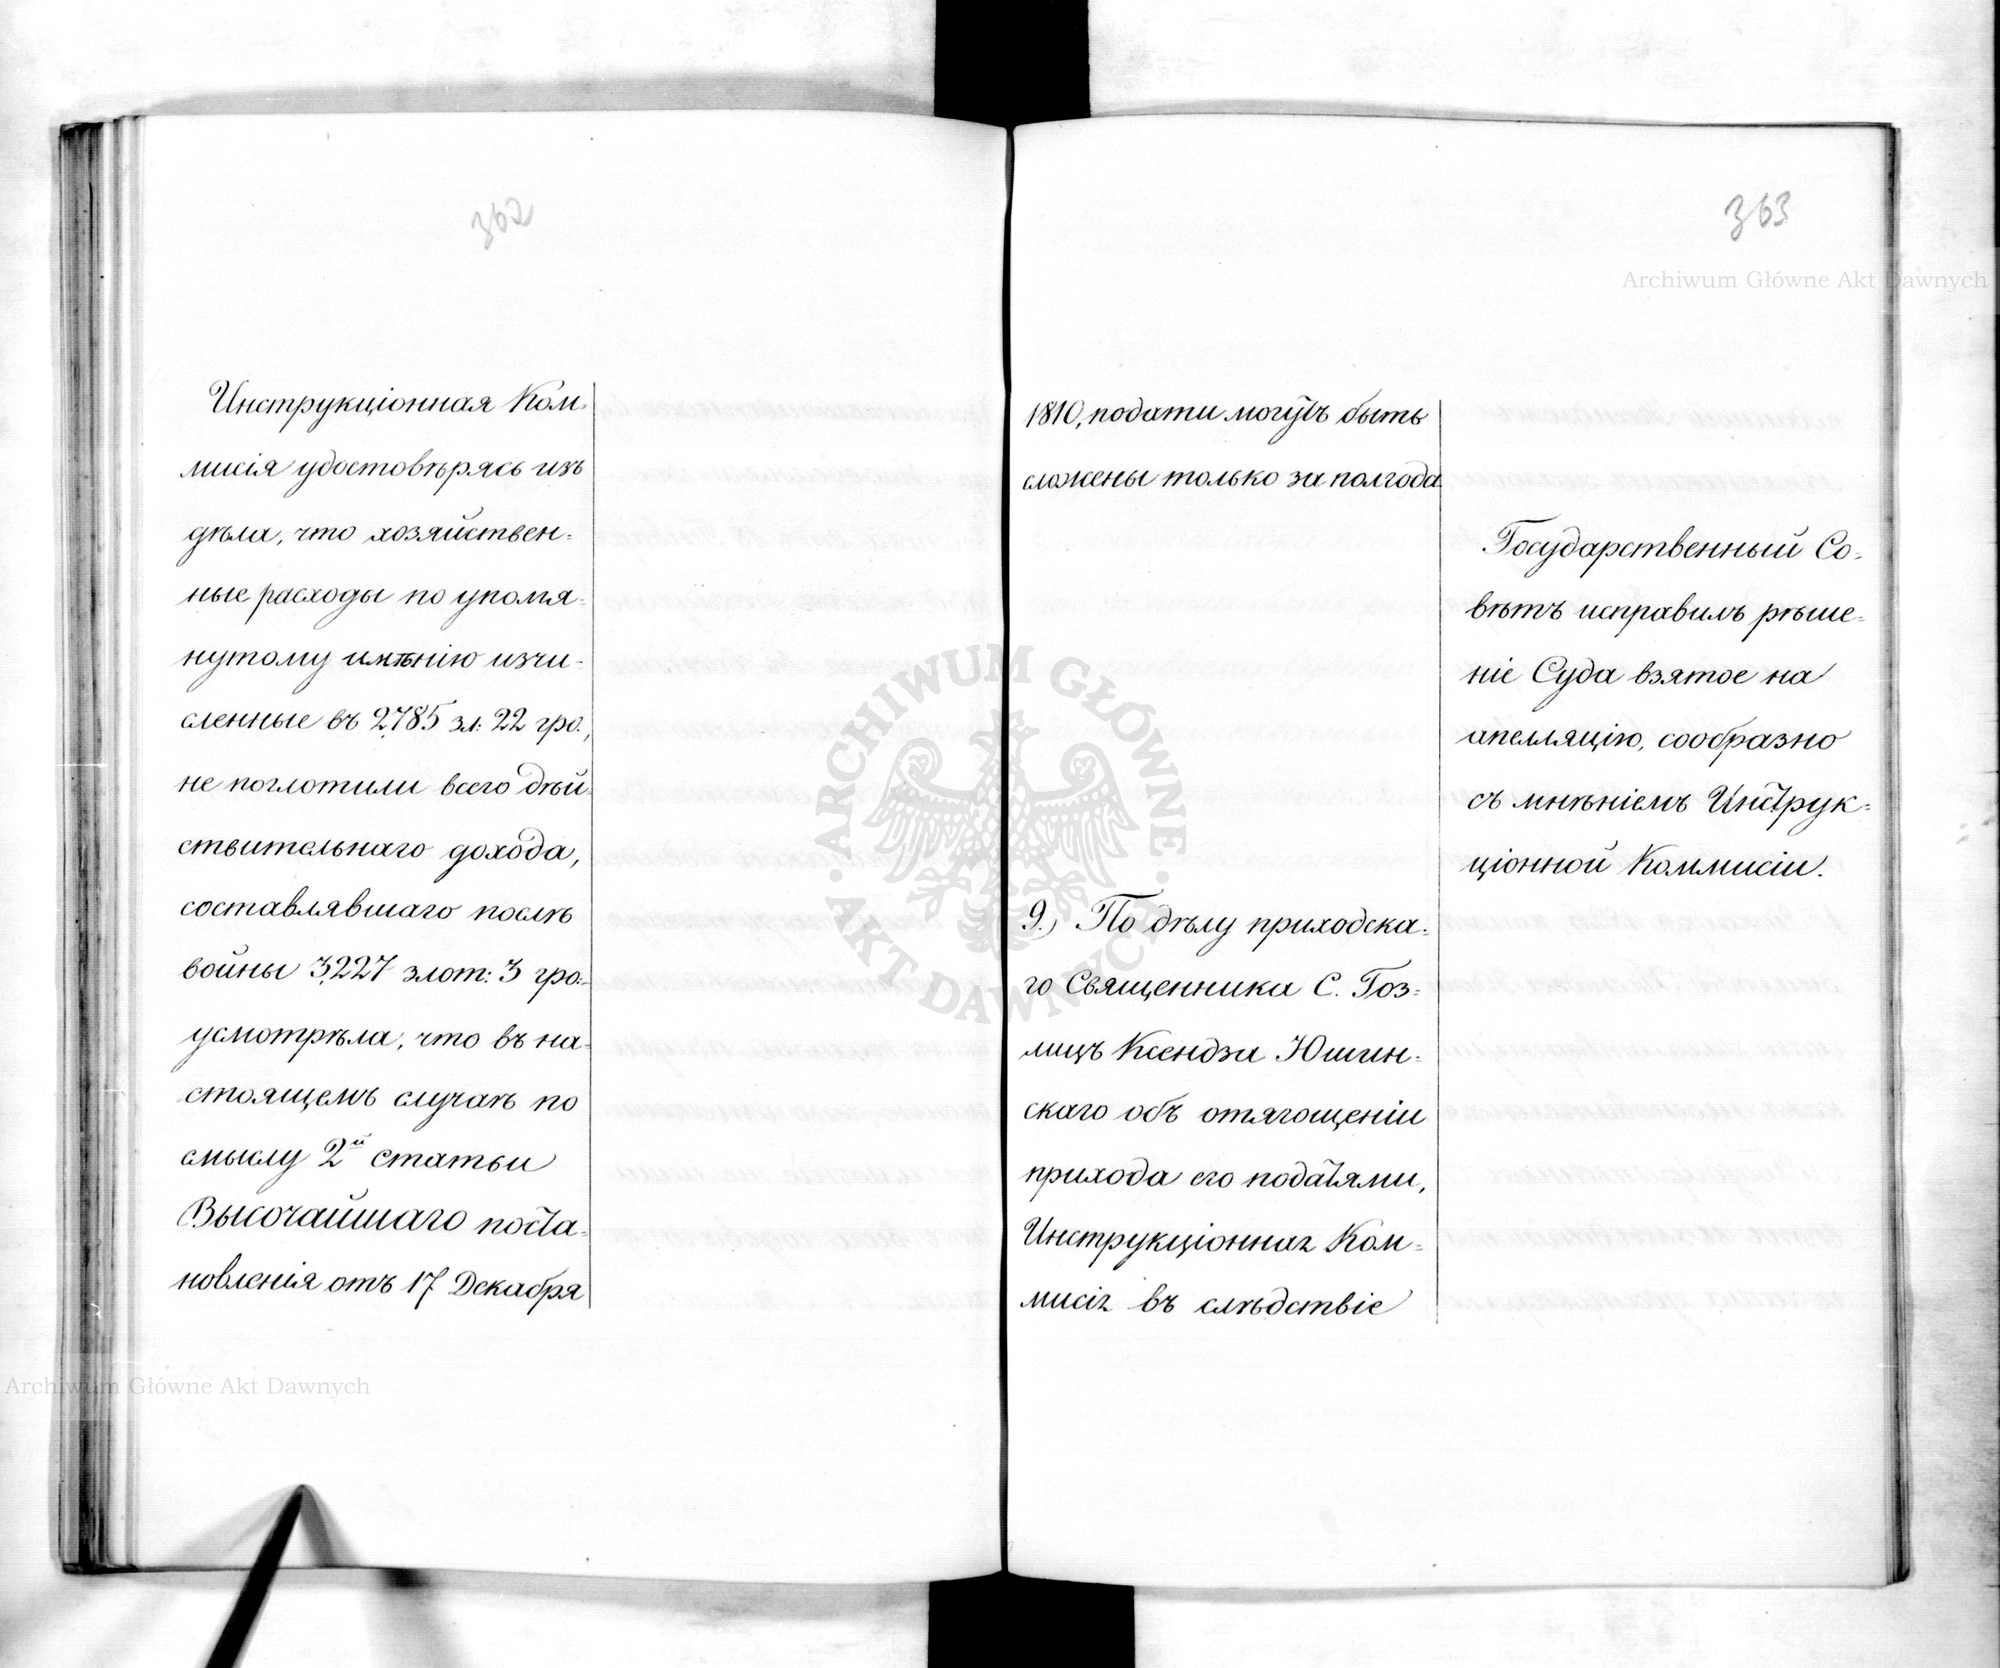 362
Инструкціонная Ком-
мисія удостовѣрясь изъ
дѣла, что хозяйствен-
ные расходы по упомя-
нутому имѣнію изчи-
сленные въ 2,785 зл: 22 гро.,
не поглотили всего дѣй-
ствительнаго дохода,
составлявшаго послѣ
войны 3,227 злот: 3 гро:-
усмотрѣла, что въ на-
стоящемъ случаѣ по
смыслу 2й статьи
Высочайшаго поста-
новленія отъ 17 Декабря
363
1810, подати могутъ быть
сложены только за полгода
Государственный Со-
вѣтъ исправилъ рѣше-
ніе Суда взятое на
апелляцію, сообразно
съ мнѣніемъ Инструк-
ціонной Коммисіи.
9.) По дѣлу приходска-
го Священника С. Гоз-
лицъ Ксендза Юшин-
скаго объ отягощеніи
прихода его податями,
Инструкціонная Ком-
мисія въ слѣдствіе
Archiwum Główne Akt Dawnych
Archiwum Główne Akt Dawnych
ARCHIWUM GŁÓWNE · AKT DAWNYCH ·